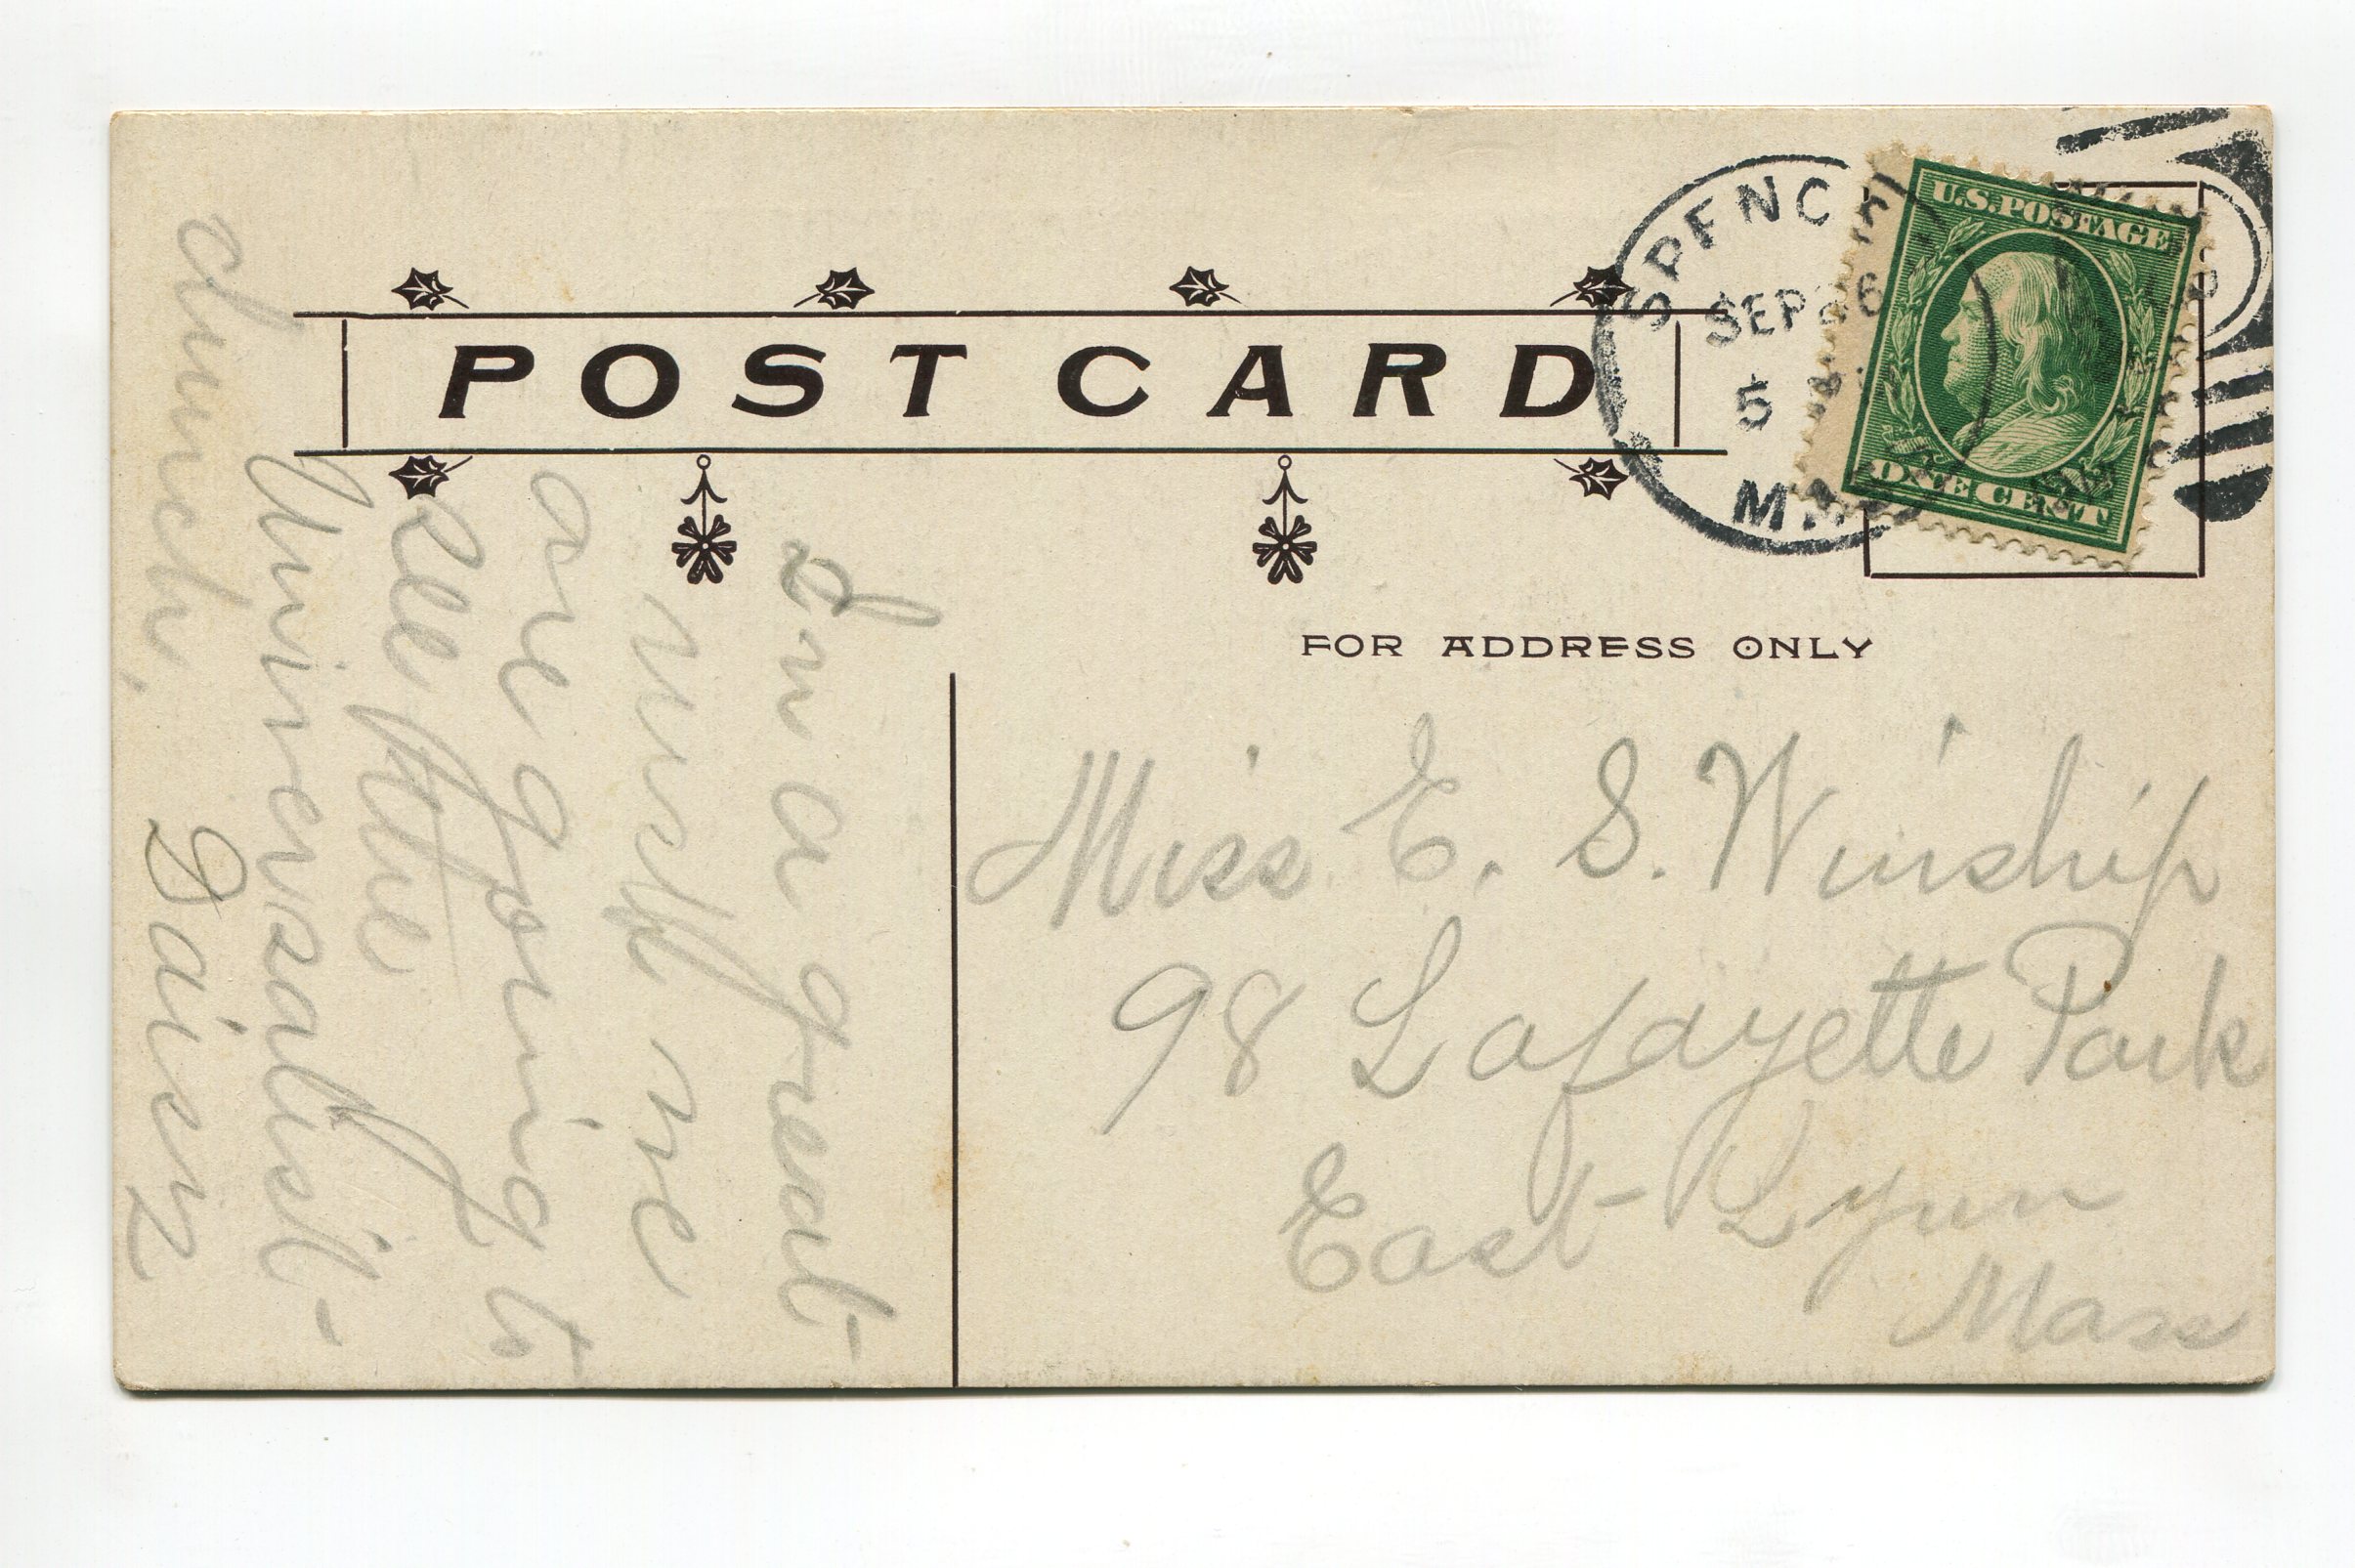 POST CARD
SPENCE
SEP 26
5
U.S.POSTAGE
ONE CENT
FOR ADDRESS ONLY
In a great
rush we
are going to
see the
Universalist-
church.
Daisy
Miss E. S. Winship
98 Lafayette Park
East Lynn
Mass